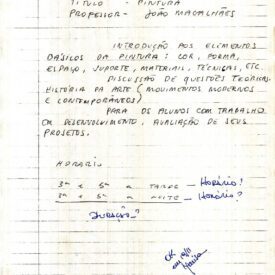 TÍTULO - PINTURA
PROFESSOR - JOÃO MAGALHÃES
INTRODUÇÃO AOS ELEMENTOS
BÁSICOS DA PINTURA: COR, FORMA,
ESPAÇO, SUPORTE, MATERIAIS, TÉCNICAS, ETC.
DISCUSSÃO DE QUESTÕES TEÓRICAS.
HISTÓRIA DA ARTE (MOVIMENTOS MODERNOS
E CONTEMPORÂNEOS)
PARA OS ALUNOS COM TRABALHO
EM DESENVOLVIMENTO, AVALIAÇÃO DE SEUS
PROJETOS.
HORARIO
3ª e 5ª a TARDE - HORÁRIO?
3ª e 5ª a NOITE - HORÁRIO?
DURAÇÃO?
OK
em